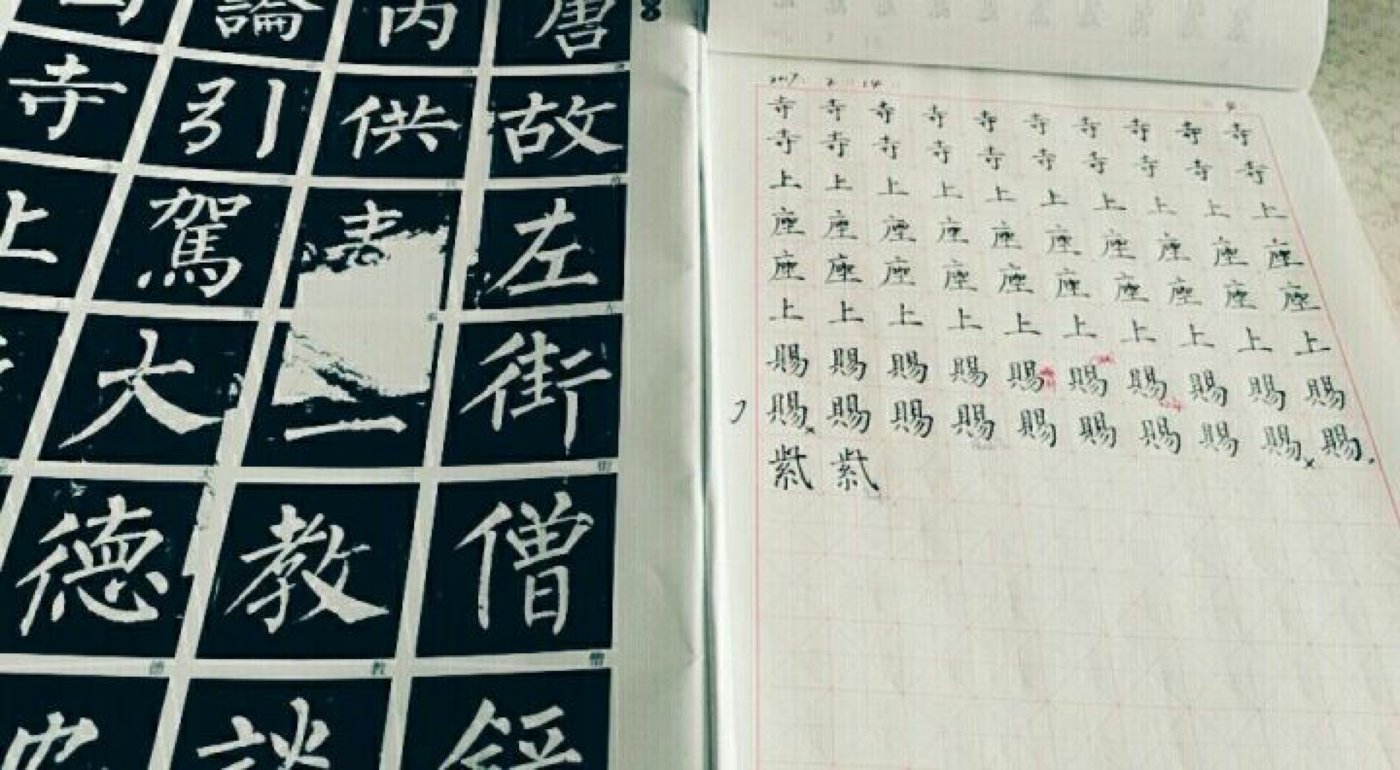 唐故左街僧
內供教談
論引駕大德安
寺上
2017 2 14
4
寺寺寺寺寺寺寺寺寺寺
寺寺寺寺寺寺寺寺寺寺
上上上上上上上上上上
座座座座座座座座座座
座座座座座座座座座座
上上上上上上上上上上
賜賜賜賜賜賜賜賜賜賜
賜賜賜賜賜賜賜賜賜賜
紫紫